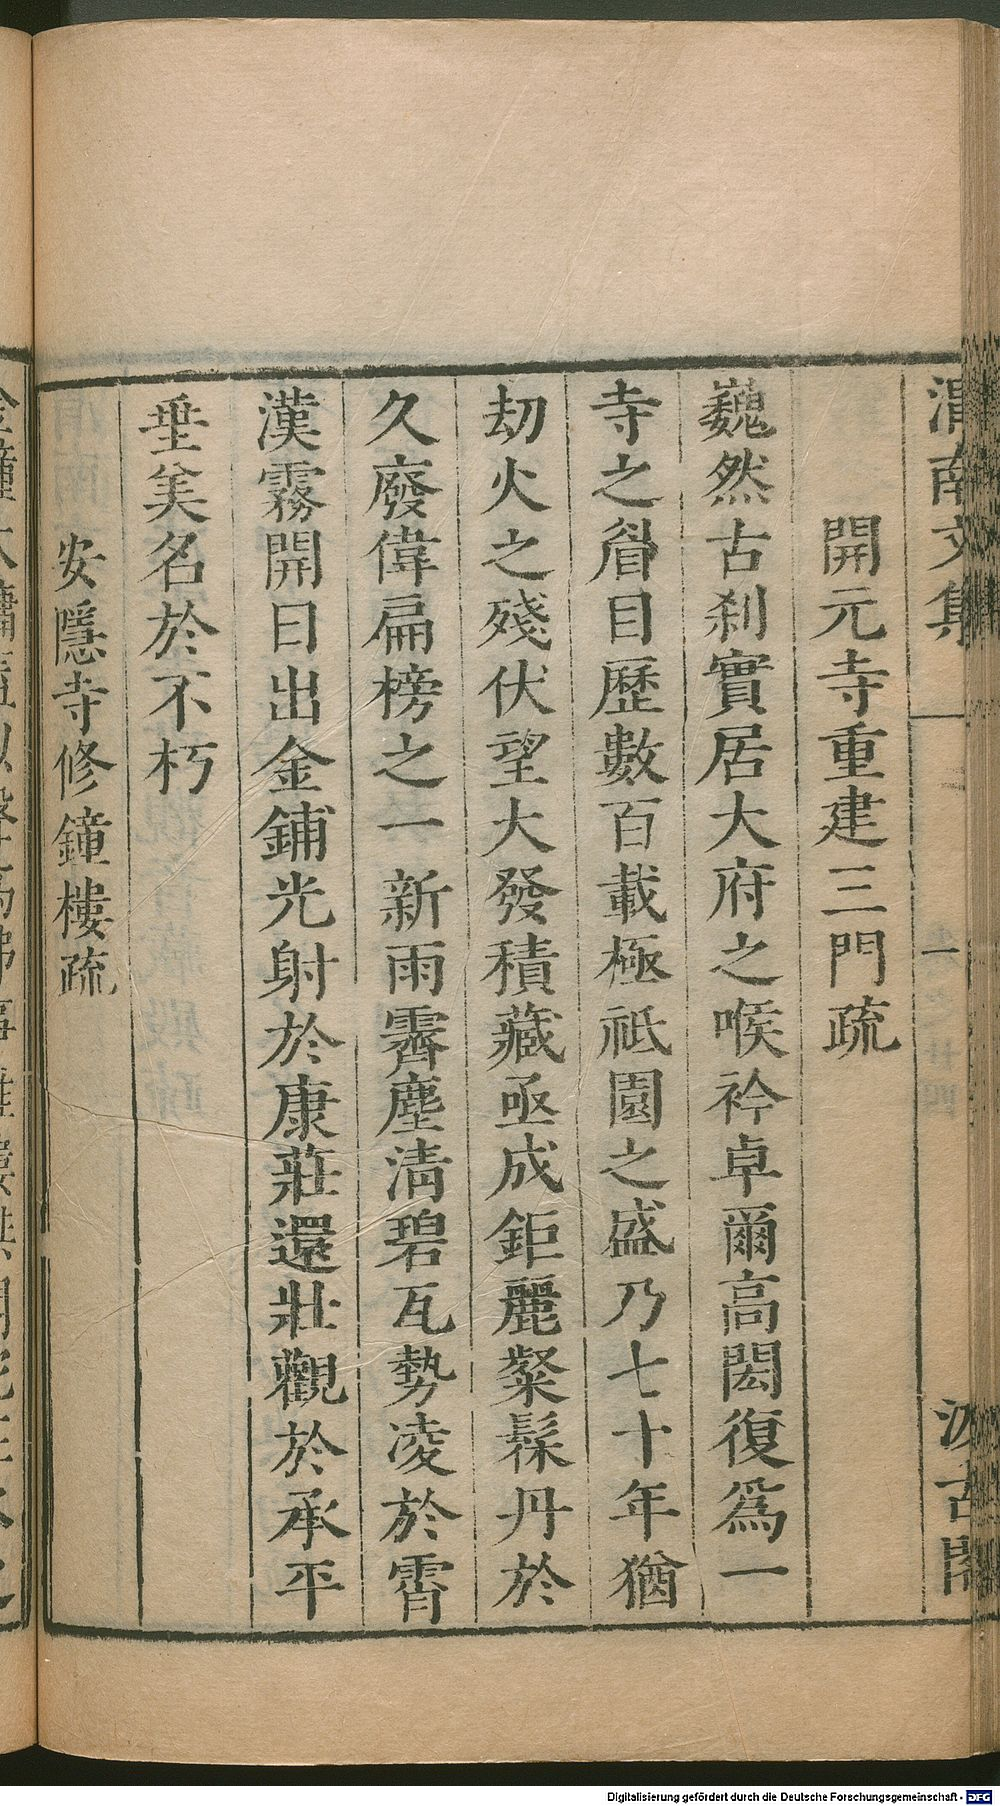 渭南文集
一
汲古閣
開元寺重建三門疏
巍然古刹實居大府之喉衿卓爾高閎復爲一
寺之眉目歷數百載極祗園之盛乃七十年猶
刧火之殘伏望大發積藏亟成鉅麗粲髹丹於
久廢偉扁榜之一新雨霽塵清碧瓦勢凌於霄
漢霧開日出金鋪光射於康莊還壯觀於承平
垂美名於不朽
安隱寺修鐘樓疏
Digitalisierung gefördert durch die Deutsche Forschungsgemeinschaft - DFG